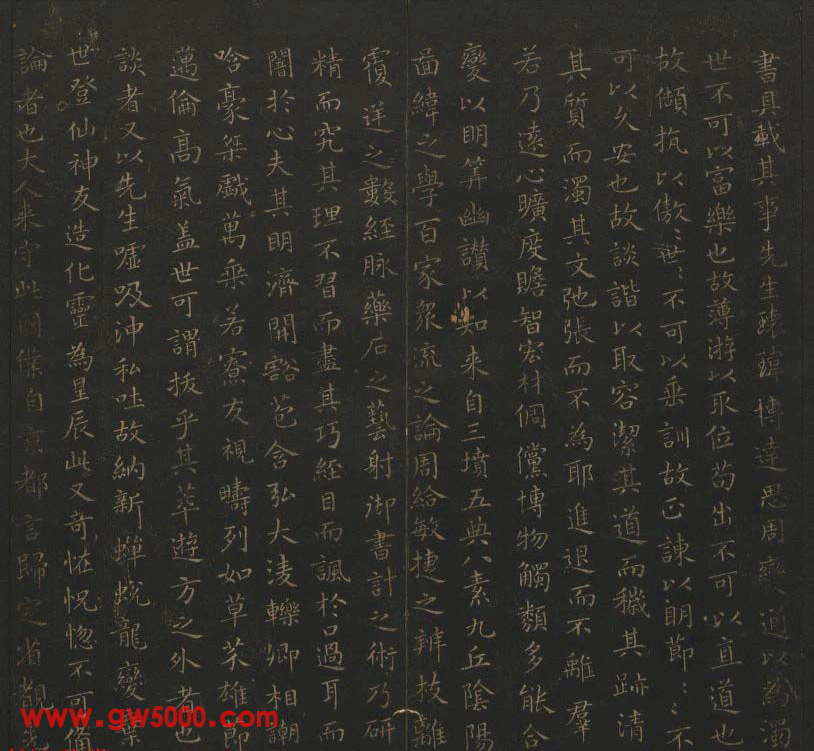 書具載其事先生瓌瑋博達思周變通以為濁
世不可以富樂也故薄游以取位苟出不可以直道也
故頡抗以傲〻世〻不可以垂訓故正諫以明節〻〻不
可以久安也故談諧以取容潔其道而穢其跡清
其質而濁其文弛張而不為耶進退而不離羣
若乃遠心曠度贍智宏材倜儻博物觸類多能合
變以明筭幽讃以知来自三墳五典八素九丘陰陽
啚緯之學百家衆流之論周給敏捷之辨枝離
覆逆之數經脉藥石之藝射御書計之術乃研
精而究其理不習而盡其巧經目而諷於口過耳而
闇於心夫其明濟開豁苞含弘大淩轢卿相謿
哈豪桀戲萬乗若寮友視疇列如草芥雄節
邁倫高氣盖世可謂拔乎其萃遊方之外者也
談者又以先生噓吸沖和吐故納新蟬蛻龍變棄
世登仙神友造化靈為星辰此又奇怪怳惚不可備
論者也大人来守此國僕自京都言歸定省覩先
www.gw5000.com